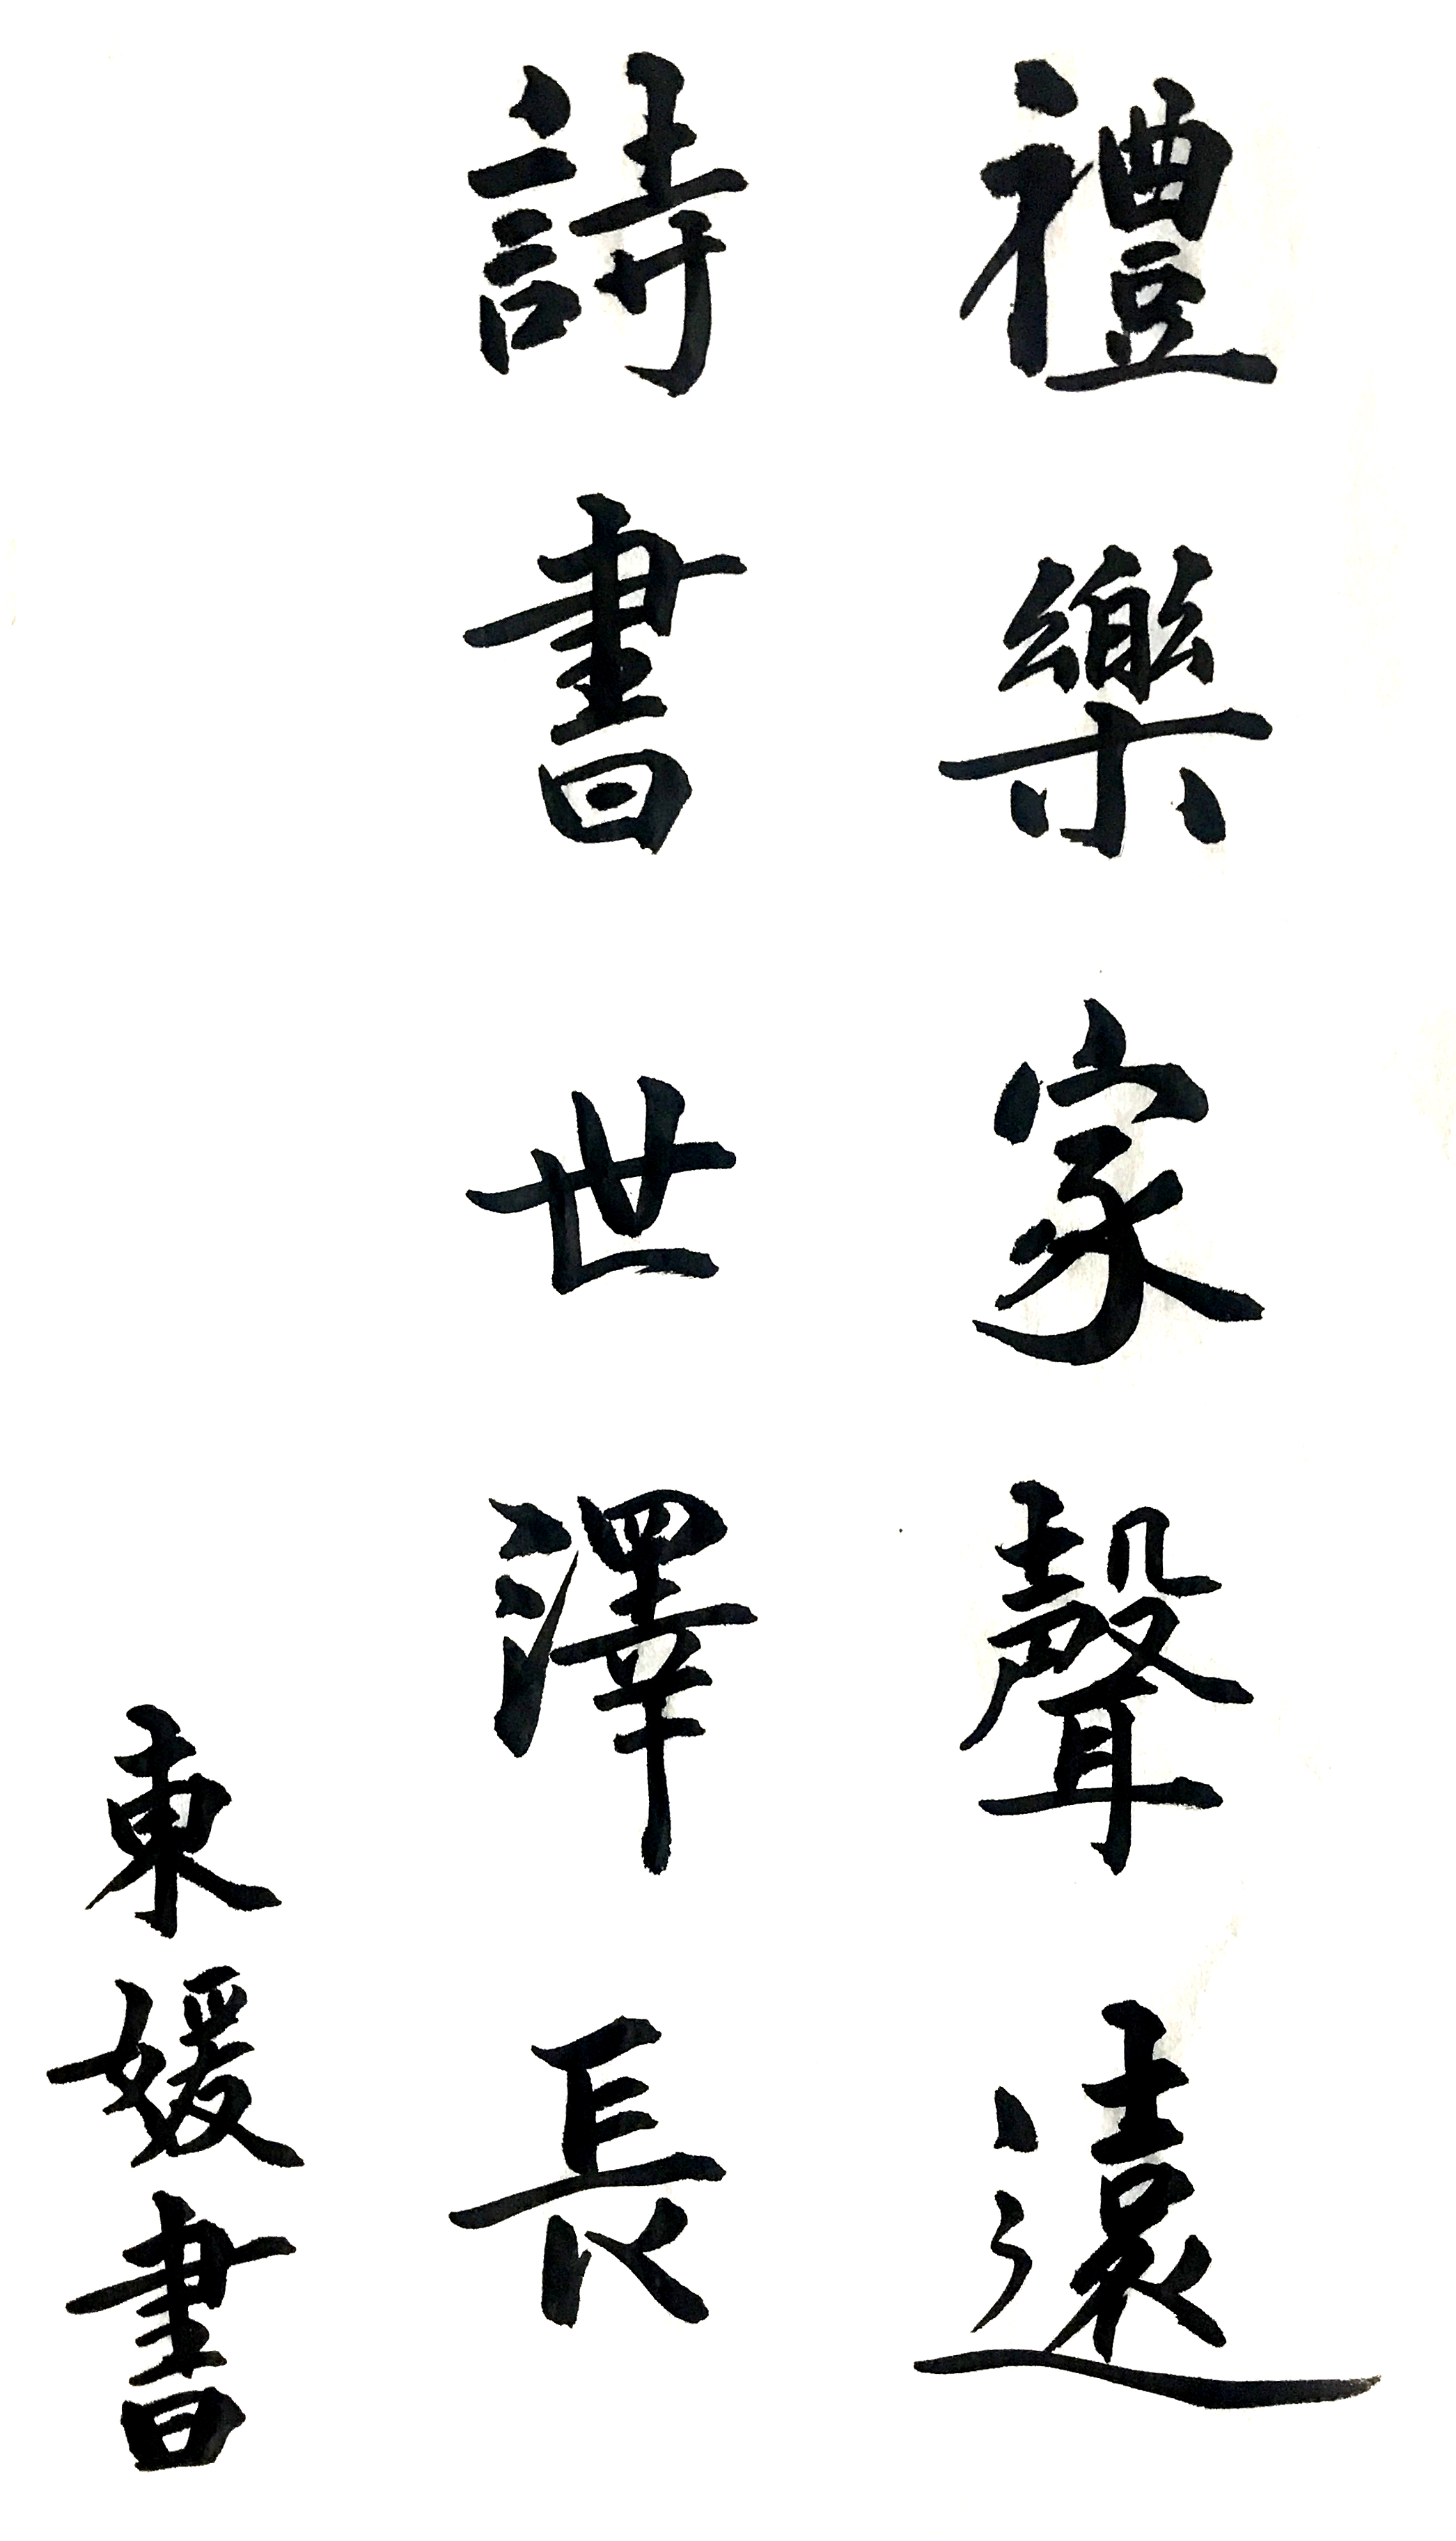 禮樂家聲遠
詩書世澤長
東媛書